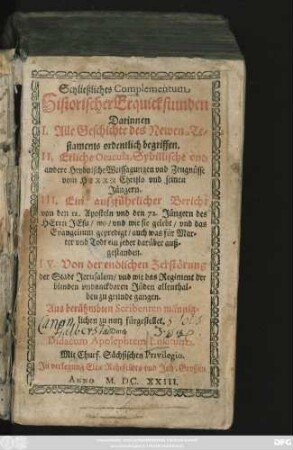 Schließliches Complementum,
Historischer Erquickstunden
Darinnen
I. Alle Geschichte des Newen Te-
staments ordentlich begriffen.
II. Etliche Oracula, Sybillische vnd
andere Heydnische Weissagungen vnd Zeugnüsse
vom HERRN Christo vnd seinen
Jüngern.
III. Ein außführlicher Bericht
von den 12. Aposteln vnd den 72. Jüngern des
HErrn JEsu / wo / vnd wie sie gelebt / vnd das
Evangelium geprediget / auch was für Mar-
ter vnd Todt ein jeder darüber auß-
gestanden.
IV. Von der endlichen Zerstörung
der Stadt Jerusalem / vnd wie das Regiment der
blinden vndanckbaren Jüden allenthal-
ben zu grunde gangen.
Aus berühmbten Scribenten männig-
lichen zu nutz fürgestellet,
durch
Didacum Apolephtem
Mit Churf. Sächsischen Privilegio.
In verlegung Eliæ Rehefelds vnd Joh. Grossen
ANNO M. DC. XXIII.